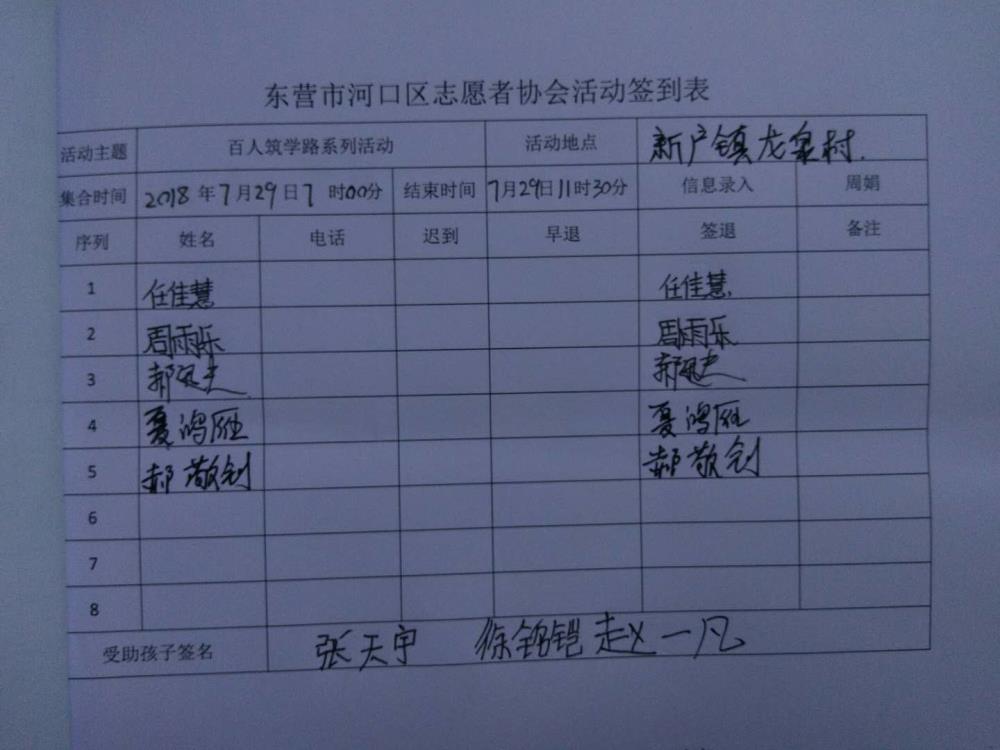 东营市河口区志愿者协会活动签到表
活动主题 百人筑学路系列活动 活动地点 新户镇龙泉村.
集合时间 2018年7月29日7时00分 结束时间 7月29日11时30分 信息录入 周娟
序列 姓名 电话 迟到 早退 签退 备注
1 任佳慧 任佳慧
2 周雨乐 周雨乐
3 郝 郝
4 夏鸿雁 夏鸿雁
5 郝敬创 郝敬创
6
7
8
受助孩子签名 张天宇 徐铭铠 赵一凡